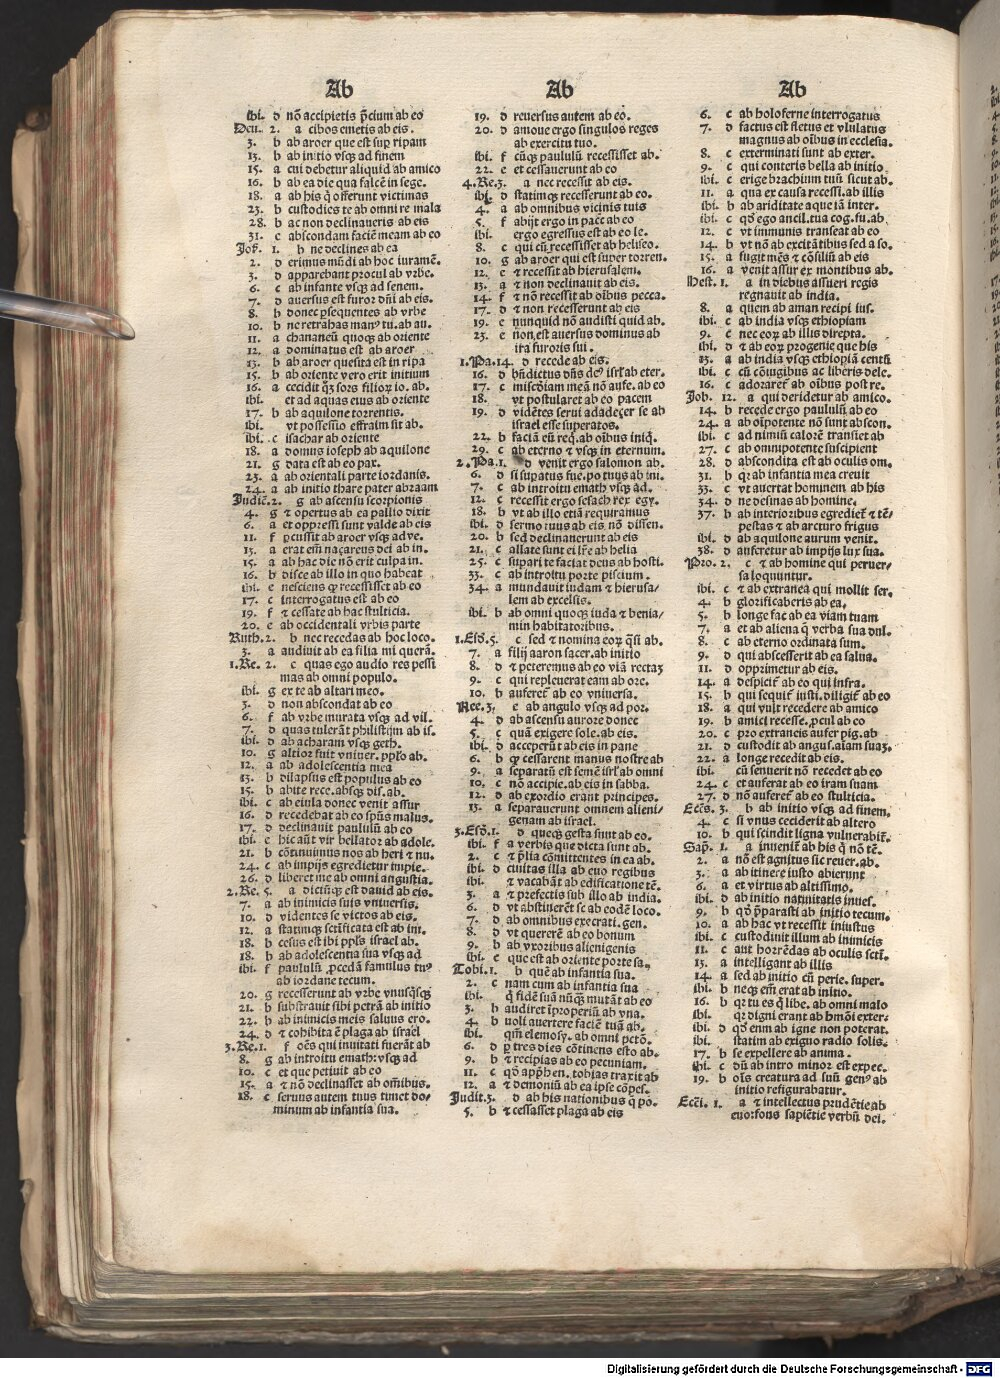 Ab
ibi. d nō accipietis p̄cium ab eo
Deu. 2. a cibos emetis ab eis.
3. b ab aroer que est sup ripam
13. b ab initio vsq̄ ad finem
15. a cui debetur aliquid ab amico
16. b ab ea die qua falcē in sege.
18. a ab his q̄ offerunt victimas
23. b custodies te ab omni re mala
28. b ac non declinaueris ab eis
31. c abscondam faciē meam ab eo
Jos. 1. b ne declines ab ea
2. d erimus mūdi ab hoc iuramē.
3. d apparebant procul ab vrbe.
6. c ab infante vsq̄ ad senem.
7. d auersus est furor dn̄i ab eis.
8. b donec p̱sequentes ab vrbe
10. b ne retrahas manꝰ tu. ab au.
11. a chananeū quoq̄ ab oriente
12. a dominatus est ab aroer
13. b ab aroer que sita est in ripa
15. b ab oriente vero erit initium
16. a cecidit q̄ꝫ sors filioꝝ io. ab.
ibi. et ad aquas eius ab oriente
17. b ab aquilone torrentis.
ibi. vt possessio effraim sit ab.
ibi. c isachar ab oriente
18. a domus ioseph ab aquilone
21. g data est ab eo pax.
23. a ab orientali parte iordanis.
24. a ab initio thare pater abraam
Judic. 2. g ab ascensu scorpionis
4. g ⁊ opertus ab ea pallio dixit
6. a et oppressi sunt valde ab eis
11. f p̱cussit ab aroer vsq̄ adve.
13. a erat em̄ naçareus dei ab in.
15. a ab hac die nō erit culpa in.
16. b disce ab illo in quo habeat
ibi. e nesciens ꝙ recessisset ab eo
17. c interrogatus est ab eo
19. f ⁊ cessate ab hac stulticia.
20. e ab occidentali vrbis parte
Ruth. 2. b nec recedas ab hoc loco.
3. a audiuit ab ea filia mi querā.
1. Re. 2. c quas ego audio res pessi
mas ab omni populo.
ibi. g ex te ab altari meo.
3. d non abscondat ab eo
6. f ab vrbe murata vsq̄ ad vil.
7. d quas tulerāt philistijm ab is.
ibi. d ab acharam vsq̄ geth.
10. g altior fuit vniuer. pp̄lo ab.
12. a ab adolescentia mea
13. b dilapsus est populus ab eo
15. b abite rece. absq̄ dis. ab.
ibi. c ab eiula donec venit assur
16. d recedebat ab eo sp̄us malus.
17. d declinauit paululū ab eo
ibi. e hic aūt vir bellator ab adole.
21. b cōtinuimus nos ab heri ⁊ nu.
24. c ab impijs egredietur impie.
26. d liberet me ab omni angustia.
2. Re. 5. a dictūq̄ est dauid ab eis.
7. a ab inimicis suis vniuersis.
10. d videntes se victos ab eis.
12. a statimq̄ sctificata est ab im.
18. b cesus est ibi pp̄ls israel ab.
18. b ab adolescentia sua vsq̄ ad
ibi. f paululū p̱cedā famulus tuꝰ
ab iordane tecum.
20. g recesserunt ab vrbe vnusq̄sq̄
21. b substrauit sibi petrā ab initio
22. b ab inimicis meis saluus ero.
24. d ⁊ cohibita ē plaga ab israel
3. Re. 1. f oēs qui inuitati fuerāt ab
8. g ab introitu emath: vsq̄ ad
10. c et que petiuit ab eo
15. a ⁊ nō declinasset ab om̄ibus.
18. c seruus autem tuus timet do/
minum ab infantia sua.
Ab
19. d reuersus autem ab eo.
20. d amoue ergo singulos reges
ab exercitu tuo.
ibi. f cūq̄ paululū recessisset ab.
22. e et cessauerunt ab eo
4. Re. 3. a nec recessit ab eis.
ibi. d statimq̄ recesserunt ab eo.
4. a ab omnibus vicinis tuis
5. f abijt ergo in pace ab eo
ibi. ergo egressus est ab eo le.
8. c qui cū recessisset ab heliseo.
10. g ab aroer qui est super torren.
12. e ⁊ recessit ab hierusalem.
13. a ⁊ non declinauit ab eis.
14. f ⁊ nō recessit ab oībus pecca.
17. d ⁊ non recesserunt ab eis
19. e nunquid nō audisti quid ab.
23. e non est auersus dominus ab
ira furoris sui.
1. Pa. 14. d recede ab eis.
16. d bn̄dictus dn̄s deꝰ isrl̄ ab eter.
17. c misc̄diam meā nō aufe. ab eo
18. vt postularet ab eo pacem
19. d vidētes serui adadeçer se ab
israel esse superatos.
22. b faciā eū req̄. ab oībus iniq̄.
29. c ab eterno ⁊ vsq̄ in eternum.
2. Pa. 1. d venit ergo salomon ab.
6. d si supatus fue. po tuus ab ini.
7. c ab introitu emath vsq̄ ad.
12. c recessit ergo sesach rex egy.
18. b vt ab illo etiā requiramus
ibi. d sermo tuus ab eis nō dissen.
20. b sed declinauerunt ab eis
21. c allate sunt ei lr̄e ab helia
25. c supari te faciat deus ab hosti.
33. c ab introitu porte piscium.
34. a mundauit iudam ⁊ hierusa/
lem ab excelsis.
ibi. b ab omni quoq̄ iuda ⁊ benia/
min habitatoribus.
1. Esd̄. 5. c sed ⁊ nomina eoꝝ q̄si ab.
7. a filij aaron sacer. ab initio
8. d ⁊ peteremus ab eo viā rectaꝫ
9. c qui repleuerat eam ab ore.
10. b auferet̄ ab eo vniuersa.
Nee. 3. e ab angulo vsq̄ ad por.
4. d ab ascensu aurore donec
5. c quā exigere sole. ab eis.
ibi. d acceperūt ab eis in pane
6. b ꝙ cessarent manus nostre ab
9. a separatū est semē isrl̄ ab omni
10. c nō accipie. ab eis in sabba.
12. d ab exordio erant principes.
13. a separauerunt omnem alieni/
genam ab israel.
3. Esd̄. 1. d quecq̄ gesta sunt ab eo.
ibi. f a verbis que dicta sunt ab.
2. c ⁊ p̄lia cōmittentes in ea ab.
ibi. d ciuitas illa ab euo regibus
ibi. ⁊ vacabāt ab edificatione tē.
3. a ⁊ prefectis sub illo ab india.
6. d vt abstinerēt se ab eodē loco.
7. d ab omnibus execrati. gen.
8. d vt quererē ab eo bonum
9. b ab vxoribus alienigenis
ibi. c que est ab oriente porte sa.
Tobi. 1. b quē ab infantia sua.
2. c nam cum ab infantia sua
ibi. q̄ fidē suā nūq̄ mutāt ab eo
3. b audiret īproperiū ab vna.
4. b noli auertere faciē tuā ab.
ibi. qm̄ elemosy. ab omni pctō.
6. d p̱ tres dies cōtinens esto ab.
9. b ⁊ recipias ab eo pecuniam.
11. c qd̄ app̄hen. tobias traxit ab
12. a ⁊ demoniū ab ea ipse cōpes.
Judit. 3. d ab his nationibus q̄ po.
5. b ⁊ cessasset plaga ab eis
Ab
6. c ab holoferne interrogatus
7. d factus est fletus et vlulatus
magnus ab oībus in ecclesia.
8. c exterminati sunt ab exter.
9. c qui conteris bella ab initio
ibi. c erige brachium tuū sicut ab.
11. a qua ex causa recessi. ab illis
ibi. b ab ariditate aque iā inter.
ibi. c qd̄ ego ancil. tua cog. fu. ab
12. c vt immunis transeat ab eo
14. b vt nō ab excitātibus sed a so.
15. a fugit mēs ⁊ cōsiliū ab eis
16. a venit assur ex montibus ab.
Hest. 1. a in diebus assueri regis
regnauit ab india.
8. a quem ab aman recipi ius.
ibi. c ab india vsq̄ ethiopiam
9. c nec eoꝝ ab illus direpta.
ibi. d ⁊ ab eoꝝ progenie que his
13. a ab india vsq̄ ethiopiā centū
ibi. c cū cōiugibus ac liberis dele.
16. c adoraret̄ ab oībus post re.
Job. 12. a qui deridetur ab amico.
14. b recede ergo paululū ab eo
24. a ab oīpotente nō sunt abscon.
ibi. c ad nimiū calorē transiet ab
27. c ab omnipotente suscipient
28. d abscondita est ab oculis om.
31. b qꝛ ab infantia mea creuit
33. c vt auertat hominem ab his
34. d ne desinas ab homine.
37. b ab interioribus egrediet̄ ⁊ tē/
pestas ⁊ ab arcturo frigus
ibi. d ab aquilone aurum venit.
38. d auferetur ab impijs lux sua.
Pro. 2. c ⁊ ab homine qui peruer/
sa loquuntur.
ibi. c ⁊ ab extranea qui mollit ser.
4. b glorificaberis ab ea.
5. b longe fac ab ea viam tuam
7. a et ab aliena q̄ verba sua dul.
8. c ab eterno ordinata sum.
9. d qui abscesserit ab ea salua.
11. d opprimetur ab eis.
14. a despicit̄ ab eo qui infra.
15. b qui sequit̄ iusti. diligit̄ ab eo
18. a qui vult recedere ab amico
19. b amici recesse. p̱cul ab eo
20. c pro extraneis aufer pig. ab
21. d custodit ab angus. aīam suaꝫ.
22. a longe recedit ab eis.
ibi. cū senuerit nō recedet ab eo
24. c et auferat ab eo iram suam
27. d nō auferet̄ ab eo stulticia.
Eccs̄. 3. b ab initio vsq̄ ad finem.
4. c si vnus ceciderit ab altero
10. b qui scindit ligna vulnerabit̄.
Sap̄. 1. a inuenit̄ ab his q̄ nō tē.
2. a nō est agnitus sic reuer. ab.
3. a ab itinere iusto abierunt
6. a et virtus ab altissimo.
ibi. d ab initio natiuitatis inues.
9. b qd̄ p̄parasti ab initio tecum.
10. a ab hac vt recessit iniustus
ibi. c custodiuit illum ab inimicis
11. c aut horrēdas ab oculis scti.
13. a intelligant ab illis
14. a sed ab initio cū perie. super.
ibi. b neq̄ em̄ erat ab initio.
16. b qꝛ tu es q̄ libe. ab omni malo
ibi. qꝛ digni erant ab hmōi exter/
ibi. d qd̄ enim ab igne non poterat.
ibi. statim ab exiguo radio solis.
17. b se expellere ab anima.
ibi. c dū ab intro minor est expec.
19. b oīs creatura ad suū genꝰ ab
initio refigurabatur.
Ecci̅. 1. a ⁊ intellectus prudētie ab
euo: fons sapiētie verbū dei.
Digitalisierung gefördert durch die Deutsche Forschungsgemeinschaft - DFG